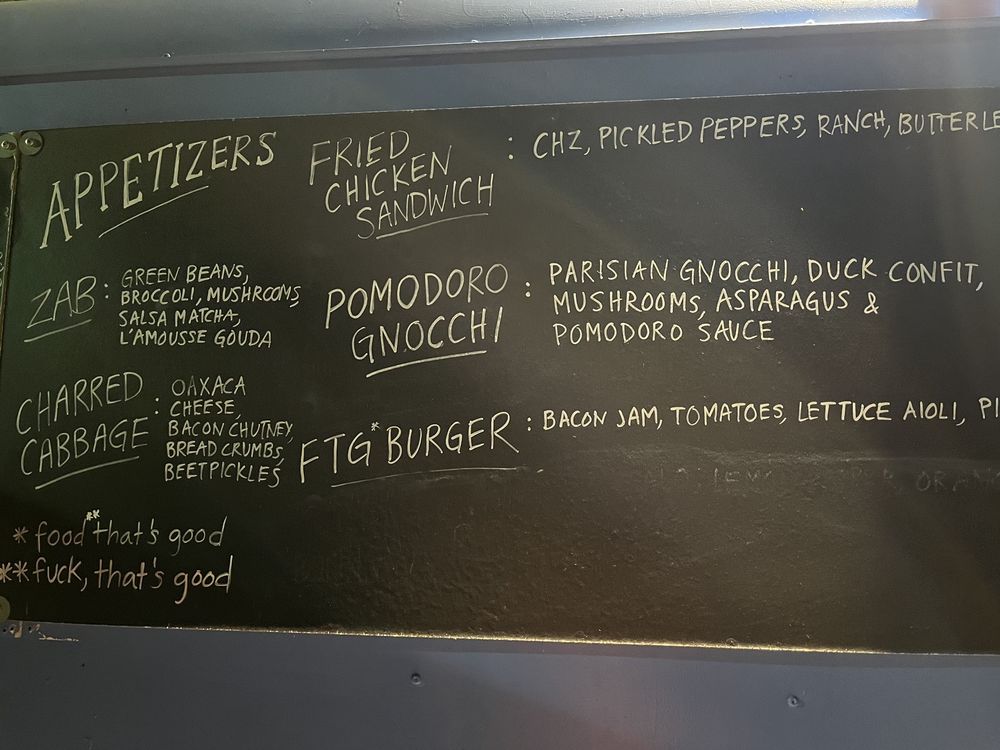 APPETIZERS
ZAB : GREEN BEANS,
BROCCOLI, MUSHROOMS
SALSA MATCHA,
L'AMOUSSE GOUDA
CHARRED
CABBAGE : OAXACA
CHEESE,
BACON CHUTNEY,
BREAD CRUMBS,
BEETPICKLES
* food** that's good
** fuck, that's good
FRIED
CHICKEN
SANDWICH : CHZ, PICKLED PEPPERS, RANCH,
POMODORO
GNOCCHI : PARISIAN GNOCCHI, DUCK CONFIT,
MUSHROOMS, ASPARAGUS &
POMODORO SAUCE
FTG* BURGER : BACON JAM, TOMATOES, LETTUCE AIOLI,